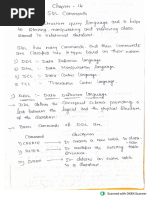 Chapter - 16
SQL Commands
structure query language and it helps
in storing, manipulating and retrieving data
stored in relational database.
SQL has many commands and these commands
are classified into types based on their
1) DDL - Data Definition language
2) DML - Data Manipulation language
3) DCL - Data Control language
4) TCL - Transaction Control language.
1) DDL - Data Definition Language.
It defines the Conceptual Schema providing a
link between the logical and the physical structure
of the database.
Basic commands of DDL are
Command Description
1) CREATE - It creates a new table in data
base
2) ALTER - It
a new column in the
existing table.
3) DROP - It deletes an entire
table
Scanned with OKEN Scanner